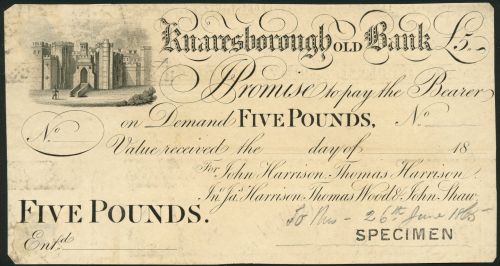 Knaresborough OLD Bank £5.-
Promise to pay the Bearer
on Demand FIVE POUNDS, No
No
Value received the day of 18
For John Harrison, Thomas Harrison,
Jno. Jas. Harrison, Thomas Wood & John Shaw.
FIVE POUNDS.
26th June
SPECIMEN
Entd.